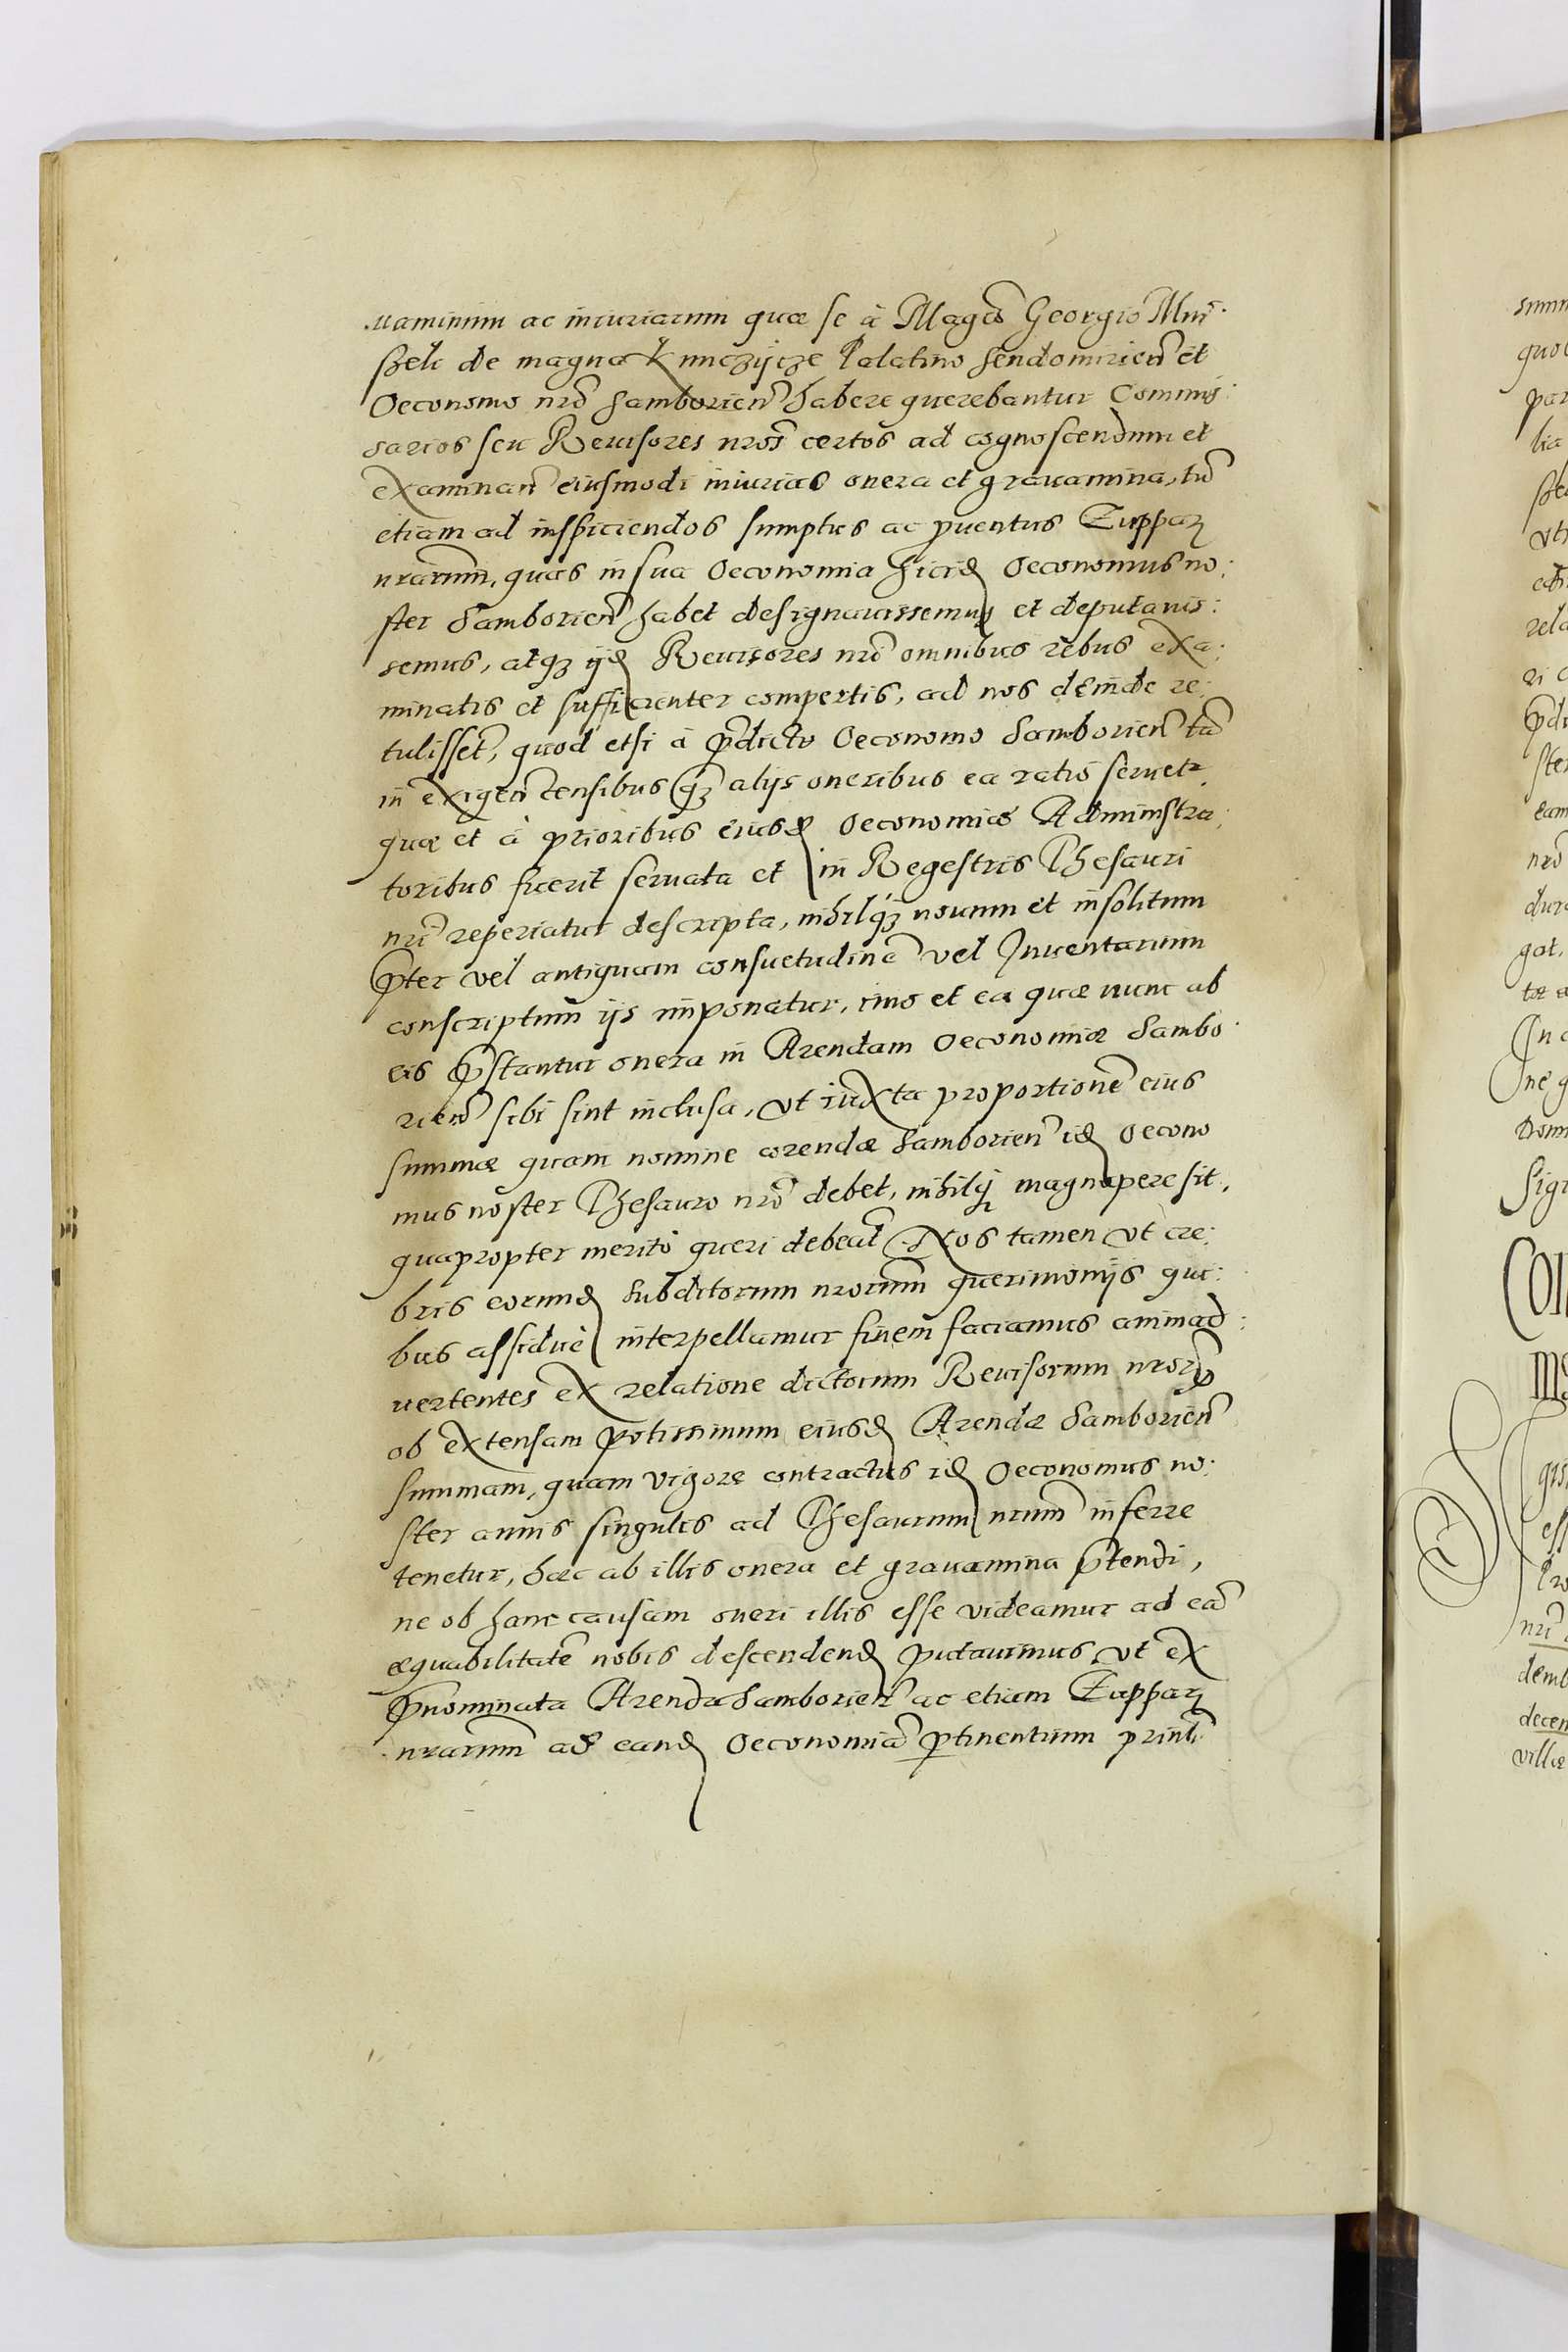 uaminum ac iniuriarum quæ se à Mag͠co Georgio Mni:
szek de magna Kunczÿcze Palatino Sendomirien̄ et
Oeconomo nr̄o Samborien̄ habere querebantur Commis:
sarios seu Reuisores nr̄os certos ad cognoscendum et
examinan̄ eiusmodi iniurias onera et grauamina, tū
etiam ad inspiciendos sumptus ac ꝓuentus Zuppaꝝ
nr̄arum, quas in sua Oeconomia hic idē Oeconomus no:
ster Samborien̄ habet designauissemus et deputauis:
semus, atqꝫ ijdē Reuisores nr̄i omnibus rebus exa:
minatis et sufficienter compertis, ad nos deinde re:
tulissēt, quod etsi à p̄dicto Oeconomo Samborien̄ tā
in exigen̄ censibus q̄ꝫ alijs oneribus ea ratio seruetr
quæ et à prioribus eiusdē Oeconomiæ Administra:
toribus fuerit seruata et in Regestris Thesauri
nr̄i reperiatur descripta, nihilqꝫ nouum et insolitum
p̄ter vel antiquam consuetudinē vel Inuentarium
conscriptum ijs imponatur, imo et ea quæ nunc ab
eis p̄stantur onera in Arendam Oeconomiæ Sambo:
rien̄ sibi sint inclusa, vt iuxta proportionē eius
summæ quam nomine arendæ Samborien̄ idē Oecono
mus noster Thesauro nr̄o debet, nihilqꝫ magnopere sit,
quapropter meritò queri debeāt. Nos tamen vt cre:
bris eorundē subditorum nr̄orum querimonijs qui:
bus assiduè interpellamur finem faciamus animad:
uertentes ex relatione dictorum Reuisorum nr̄orꝝ
ob extensam potissimum eiusdē Arendæ Samborien̄
summam, quam vigore contractus idē Oeconomus no:
ster annis singulis ad Thesaurum nr̄um inferre
tenetur, hæc ab illis onera et grauamina p̄tendi,
ne ob hanc causam oneri illis esse videamur ad eā
æquabilitatē nobis descendendē putauimus, vt ex
p̄nominata Arenda Samborien̄ ac etiam Zuppaꝝ
nr̄arum ad eandē Oeconomiā ꝑtinentium